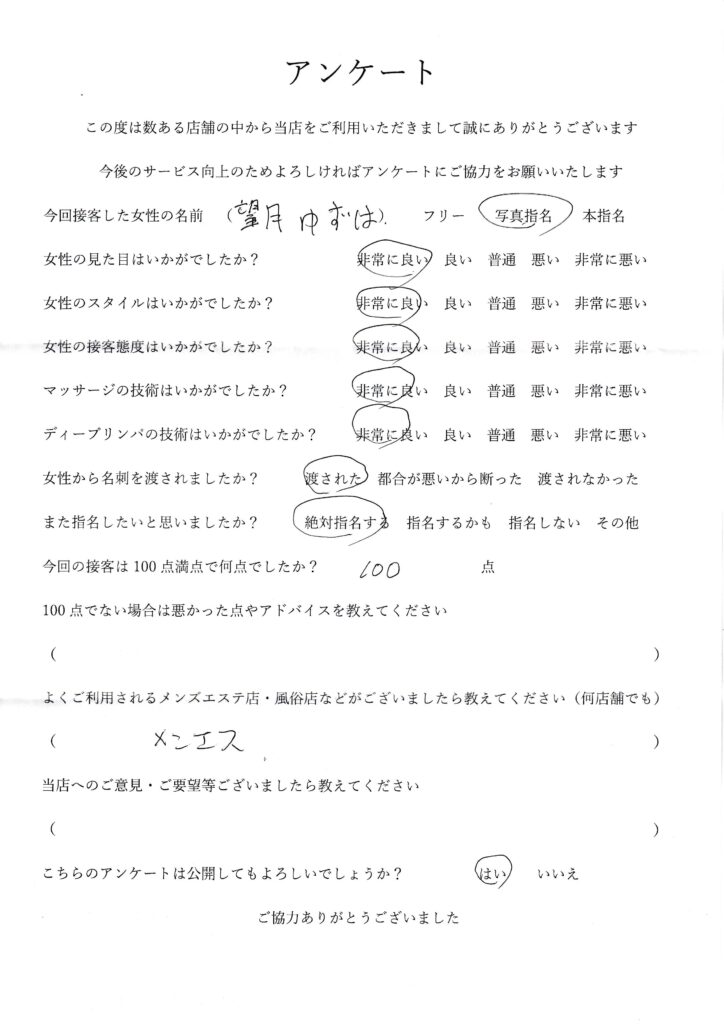 アンケート
この度は数ある店舗の中から当店をご利用いただきまして誠にありがとうございます
今後のサービス向上のためよろしければアンケートにご協力をお願いいたします
今回接客した女性の名前 （望月 ゆずは） フリー 写真指名 本指名
女性の見た目はいかがでしたか？ 非常に良い 良い 普通 悪い 非常に悪い
女性のスタイルはいかがでしたか？ 非常に良い 良い 普通 悪い 非常に悪い
女性の接客態度はいかがでしたか？ 非常に良い 良い 普通 悪い 非常に悪い
マッサージの技術はいかがでしたか？ 非常に良い 良い 普通 悪い 非常に悪い
ディープリンパの技術はいかがでしたか？ 非常に良い 良い 普通 悪い 非常に悪い
女性から名刺を渡されましたか？ 渡された 都合が悪いから断った 渡されなかった
また指名したいと思いましたか？ 絶対指名する 指名するかも 指名しない その他
今回の接客は100点満点で何点でしたか？ 100 点
100点でない場合は悪かった点やアドバイスを教えてください
（ ）
よくご利用されるメンズエステ店・風俗店などがございましたら教えてください（何店舗でも）
（ メンエス ）
当店へのご意見・ご要望等ございましたら教えてください
（ ）
こちらのアンケートは公開してもよろしいでしょうか？ はい いいえ
ご協力ありがとうございました